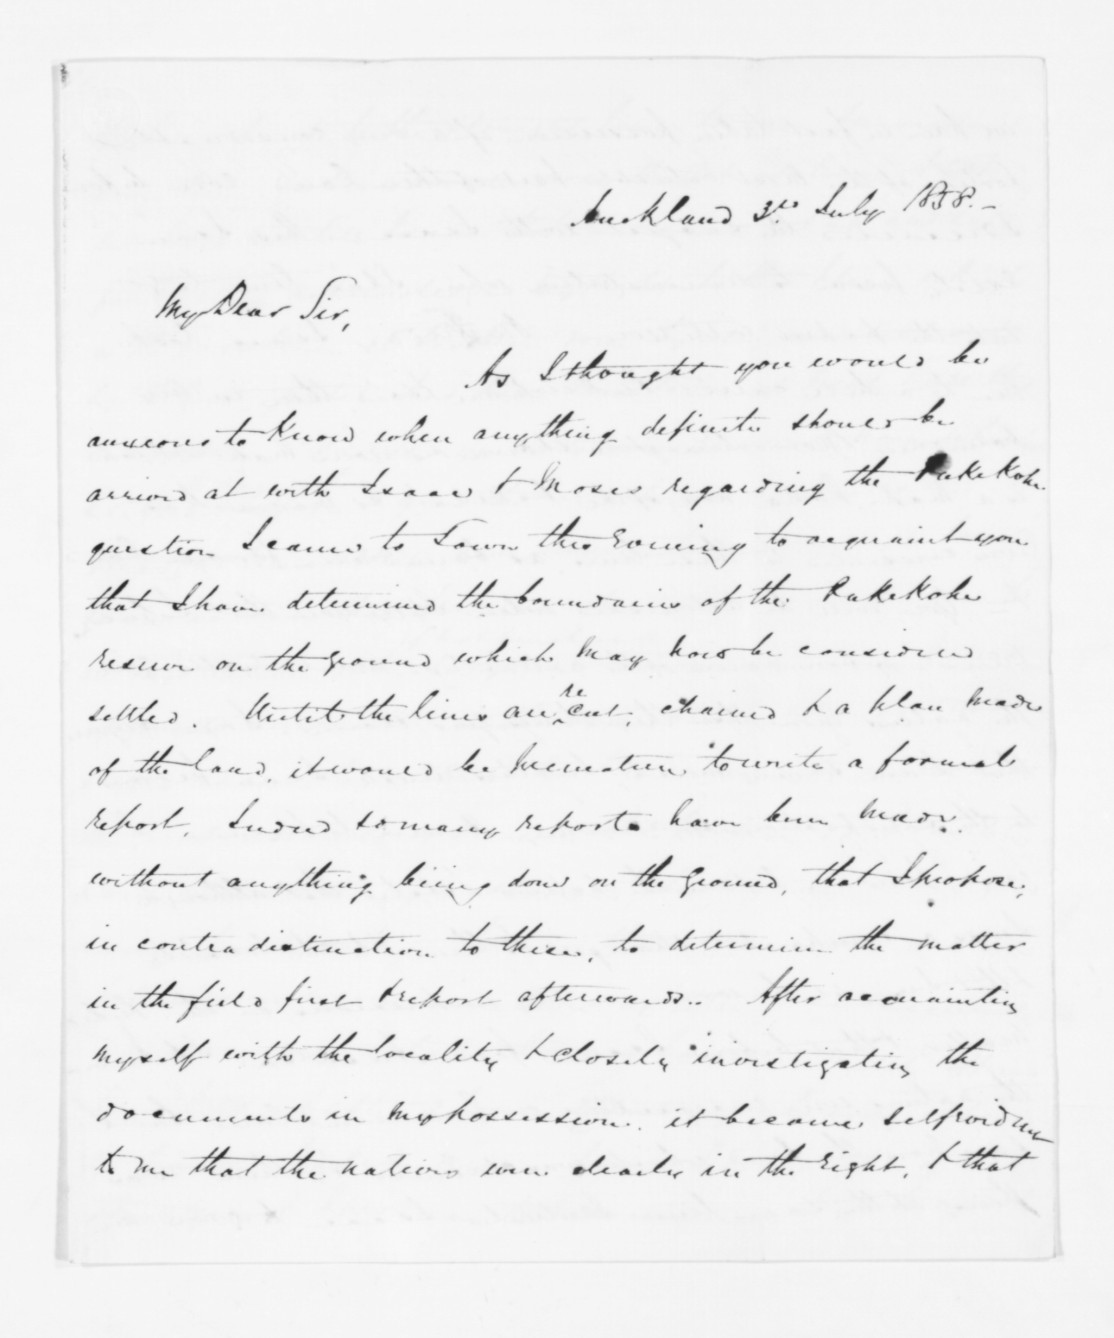 Auckland 3rd. July 1858.-
My Dear Sir,
As I thought you would be
anxious to know when anything definite should be
arrived at with Isaac & Moses regarding the Pukekohe
question I came to Town this Evening to acquaint you
that I have determined the boundaries of the Pukekohe
reserve on the ground which may now be considered
settled. Until the lines are re cut, chained & a plan made
of the land, it would be premature to write a formal
report, Indeed so many reports have been made
without anything being done on the ground, that I propose,
in contradistinction to these, to determine the matter
in the field first & report afterwards. After acquainting
myself with the locality & closely investigating the
documents in my possession it became self evident
to me that the natives were clearly in the right, & that